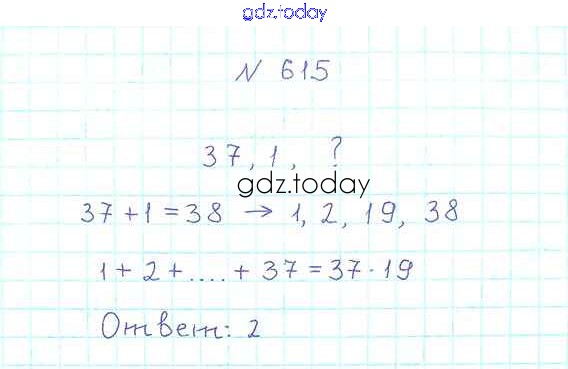 gdz.today
N 615
37, 1, ?
gdz.today
37 + 1 = 38 → 1, 2, 19, 38
1 + 2 + .... + 37 = 37 · 19
Ответ: 2